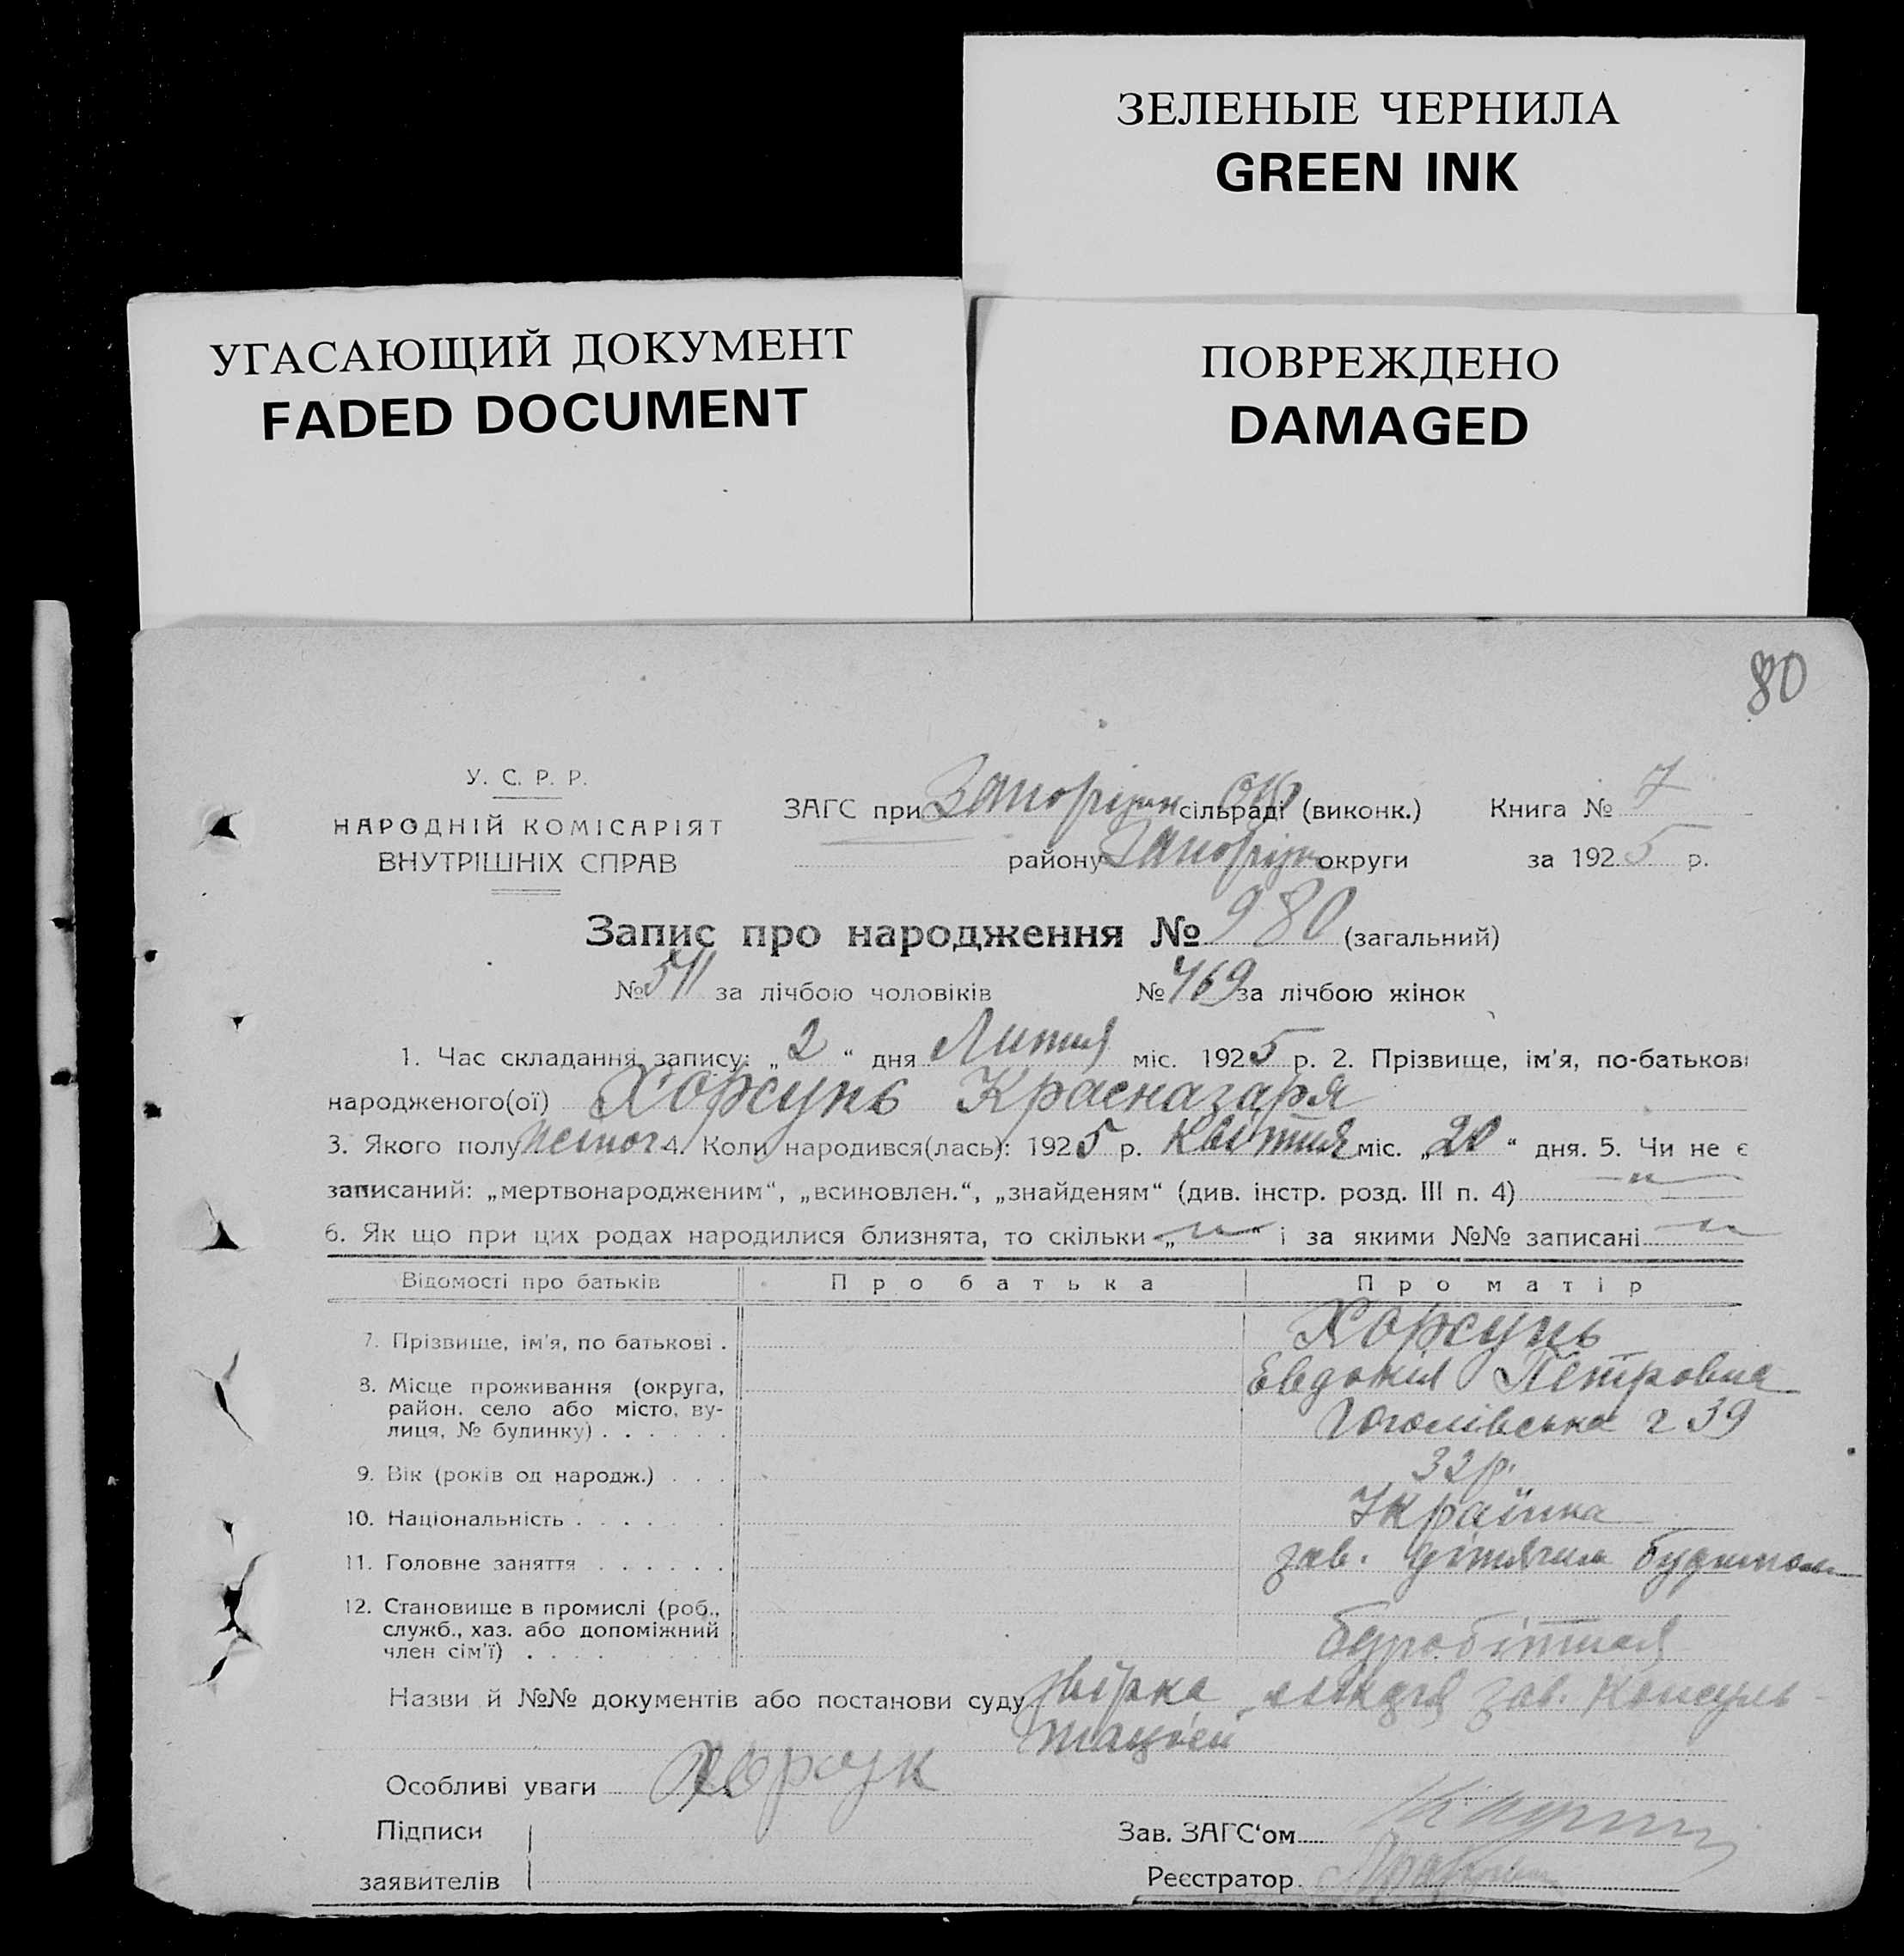 ЗЕЛЕНЫЕ ЧЕРНИЛА
GREEN INK
УГАСАЮЩИЙ ДОКУМЕНТ
FADED DOCUMENT
ПОВРЕЖДЕНО
DAMAGED
80
У. С. Р. Р.
НАРОДНІЙ КОМІСАРІЯТ
ВНУТРІШНІХ СПРАВ
ЗАГС при Запоріжж сільраді (виконк.) Книга № 7
району Запоріж округи за 1925 р.
Запис про народження № 980 (загальний)
№ 511 за лічбою чоловіків № 469 за лічбою жінок
1. Час складання запису: „2“ дня Липня міс. 1925 р. 2. Прізвище, ім'я, по-батькові
народженого(ої) Хорсунь Красназаря
3. Якого полу жіноч 4. Коли народився(лась): 1925 р. Квітня міс. „20“ дня. 5. Чи не є
записаний: „мертвонародженим“, „всиновлен.“, „знайденям“ (див. інстр. розд. III п. 4) „
6. Як що при цих родах народилися близнята, то скільки „ “ і за якими №№ записані „
Відомості про батьків Про батька Про матір
7. Прізвище, ім'я, по батькові . Хорсунь
Евдокія Петровна
8. Місце проживання (округа,
район, село або місто, ву-
лиця, № будинку) . . . . . . Гоголівська 2 39
9. Вік (років од народж.) . . . 32 р.
10. Національність . . . . . . Українка
11. Головне заняття . . . . . . зав. дітячим будинком
12. Становище в промислі (роб.,
служб., хаз. або допоміжний
член сім'ї) . . . .
Назви й №№ документів або постанови суду зав. Консуль-
тацією
Особливі уваги
Підписи
заявителів
Зав. ЗАГС'ом
Реєстратор